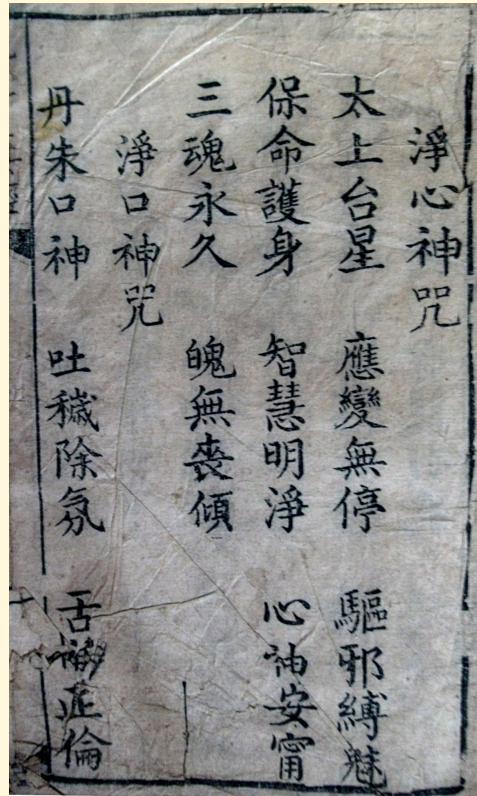 淨心神咒
太上台星 應變無停 驅邪縛魅
保命護身 智慧明淨 心神安甯
三魂永久 魄無喪傾
淨口神咒
丹朱口神 吐穢除氛 舌神正倫